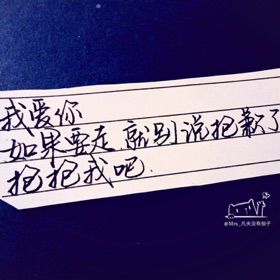 我爱你
如果要走 就别说抱歉了
抱抱我吧.
@Mrs_凡夫没有仙子